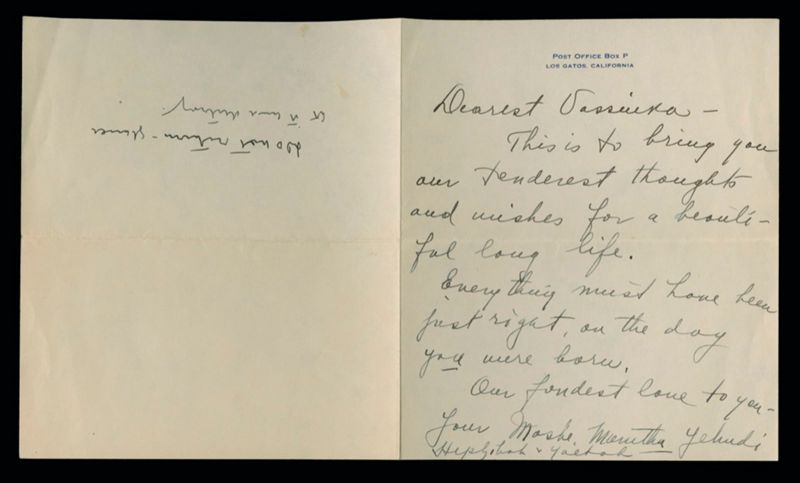 POST OFFICE BOX P
LOS GATOS, CALIFORNIA
Dearest Vassinka –
This is to bring you
our tenderest thoughts
and wishes for a beauti–
ful long life.
Everything must have been
just right, on the day
you were born.
Our fondest love to you–
Your Moshe, Marutha Yehudi
Hephzibah + Yaltah
Do not return – glance
at it and destroy.